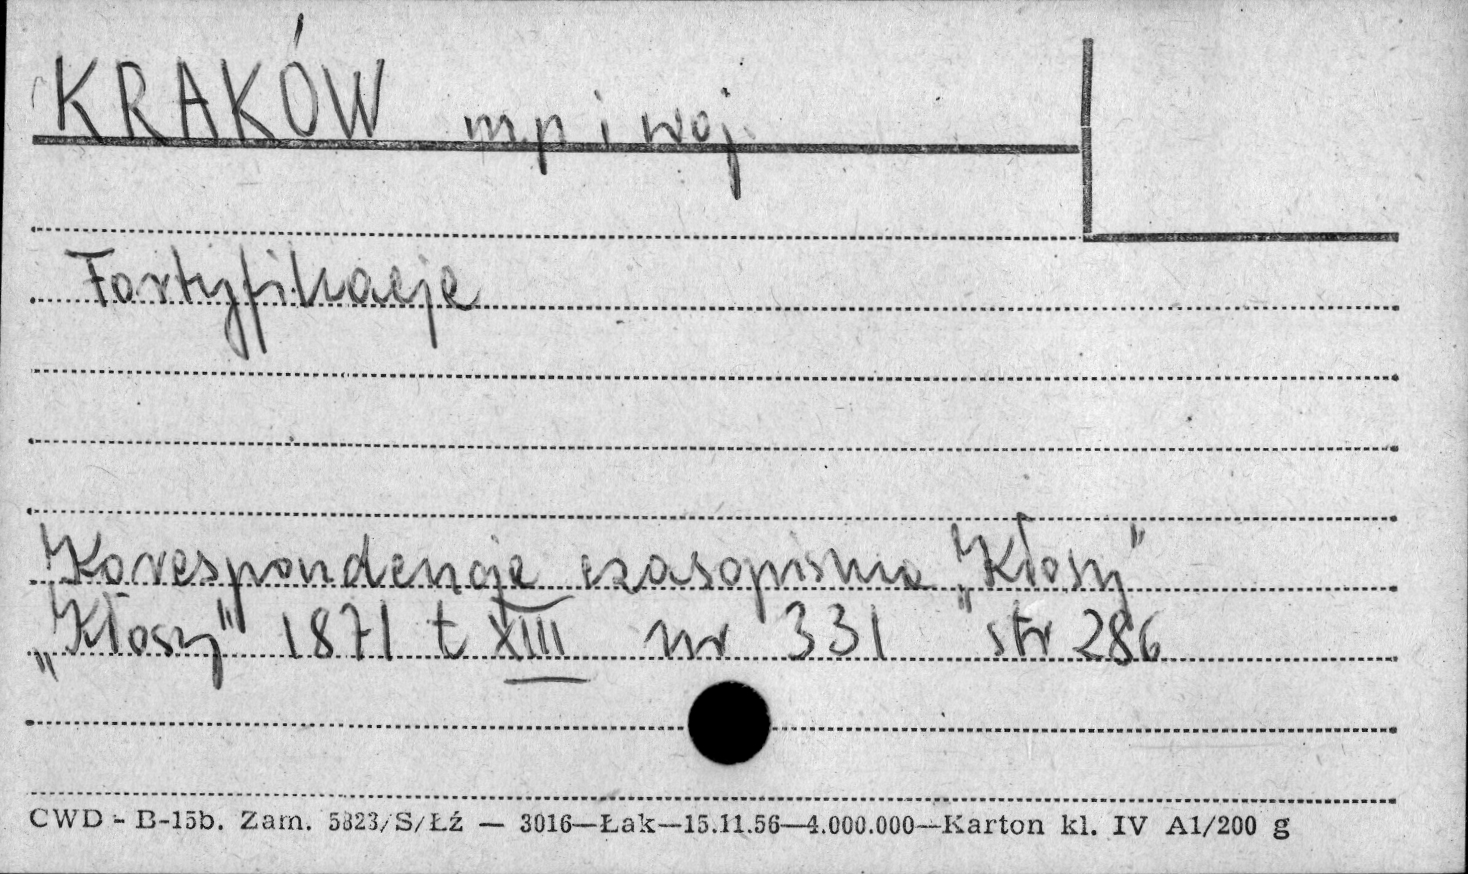 KRAKÓW mp i woj.
Fortyfikacje
Korespondencje czasopisma „Kłosy"
„Kłosy" 1871 t XIII nr 331 str 286
CWD - B-15b. Zam. 5823/S/Łź — 3016—Łak—15.11.56—4.000.000—Karton kl. IV A1/200 g